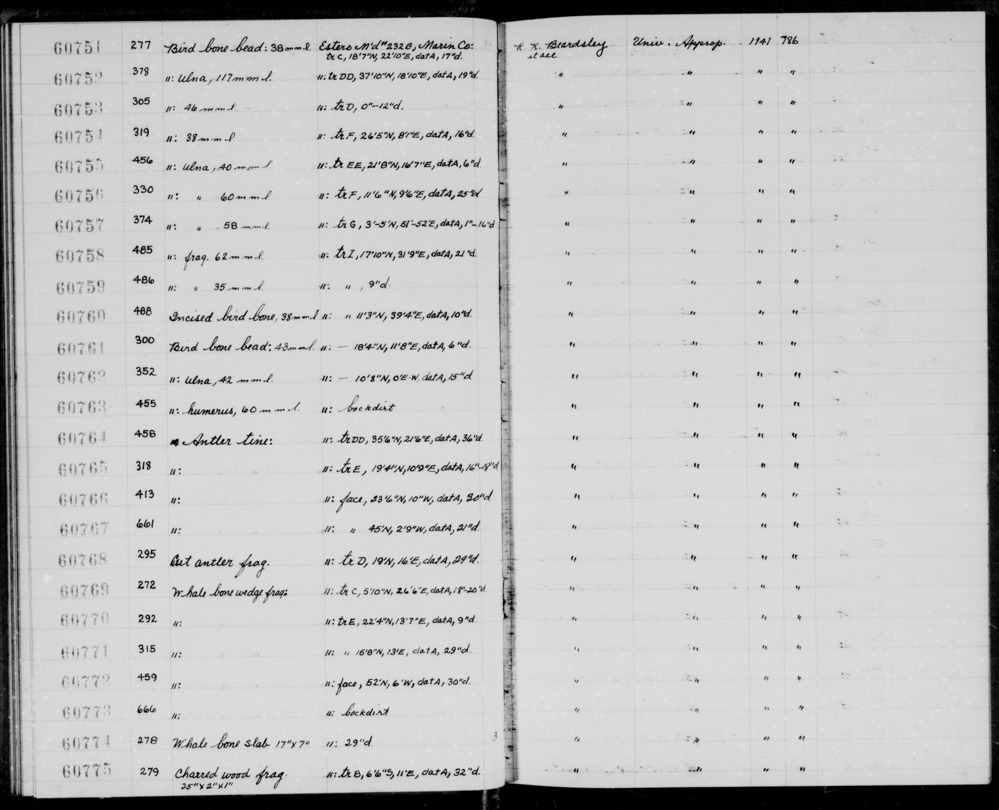 60751 277 Bird bone bead: 38mm l. Estero M'd #232B, Marin Co: R. K. Beardsley Univ. Approp. 1941 786
tr C, 18'7"N, 22'10"E, dat A, 17"d. et al
60752 378 ": Ulna, 117 mm l. ": tr DD, 37'10"N, 18'10"E, dat A, 19"d " " " "
60753 305 ": 46 mm l ": tr D, 0"-12"d. " " " "
60754 319 ": 38 mm l ": tr F, 26'5"N, 8'1"E, dat A, 16"d " " " "
60755 456 ": Ulna, 40 mm l ": tr EE, 21'8"N, 16'7"E, dat A, 6"d " " " "
60756 330 ": " 60 mm l ": tr F, 11'6"N, 9'6"E, dat A, 25"d " " " "
60757 374 ": " 58 mm l ": tr G, 3'-5'N, 51'-52'E, dat A, 1"-16"d " " " "
60758 485 ": frag. 62 mm l ": tr I, 17'10"N, 31'9"E, dat A, 21"d. " " " "
60759 486 ": " 35 mm l ": " , 9"d. " " " "
60760 488 Incised bird bone, 38mm l ": " 11'3"N, 39'4"E, dat A, 10"d. " " " "
60761 300 Bird bone bead: 43mm l. ": — 18'4"N, 11'8"E, dat A, 6"d. " " " "
60762 352 ": Ulna, 42 mm l. ": — 10'8"N, 0'E-W, dat A, 15"d " " " "
60763 455 ": humerus, 60 mm l. ": backdirt " " " "
60764 458 Antler tine: ": tr DD, 35'6"N, 21'6"E, dat A, 36"d " " " "
60765 318 ": ": tr E, 19'4"N, 10'9"E, dat A, 16"-18"d " " " "
60766 413 ": ": face, 23'6"N, 10"W, dat A, 30"d " " " "
60767 661 ": ": " 45'N, 2'9"W, dat A, 21"d. " " " "
60768 295 Cut antler frag. ": tr D, 19'N, 16'E, dat A, 29"d. " " " "
60769 272 Whale bone wedge frag: ": tr C, 5'10"N, 26'6"E, dat A, 18"-20"d " " " "
60770 292 ": ": tr E, 22'4"N, 13'7"E, dat A, 9"d " " " "
60771 315 ": ": " 15'8"N, 13'E, dat A, 29"d. " " " "
60772 459 ": ": face, 52'N, 6'W, dat A, 30"d. " " " "
60773 666 ": ": backdirt " " " "
60774 278 Whale bone slab 17"x7" ": 29"d 3 " " " "
60775 279 Charred wood frag. ": tr B, 6'6"S, 11'E, dat A, 32"d. " " " "
25"x2"x1"